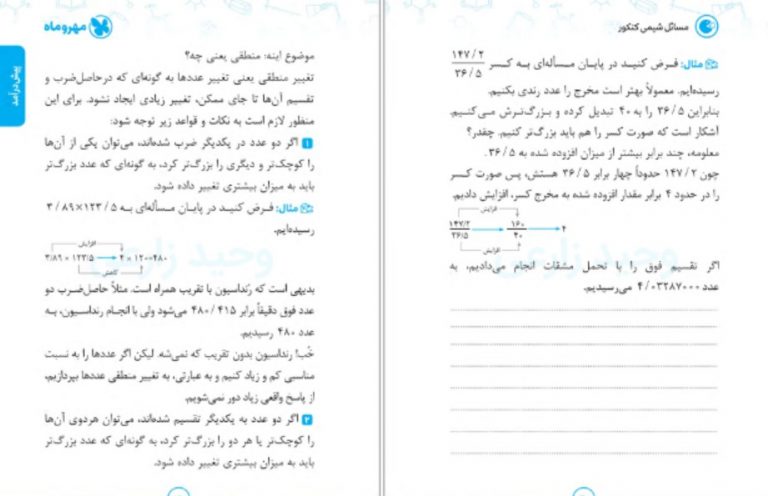 مسائل شیمی کنکور
مثال: فـرض کنیـد در پایـان مسـأله‌ای بـه کسـر ۱۴۷/۲
۳۶/۵
رسیده‌ایم. معمولاً بهتر است مخرج را عدد رندی بکنیم.
بنابراین ۳۶/۵ را به ۴۰ تبدیل کرده و بـزرگ‌تـرش مـی‌کنیـم.
آشکار است که صورت کسر را هم باید بزرگ‌تر کنیم. چقدر؟
معلومه، چند برابر بیشتر از میزان افزوده شده به ۳۶/۵.
چون ۱۴۷/۲ حدوداً چهار برابر ۳۶/۵ هستش، پس صورت کسر
را در حدود ۴ برابر مقدار افزوده شده به مخرج کسر، افزایش دادیم.
افزایش
۱۴۷/۲
۳۶/۵
۱۶۰
۴۰
۴
افزایش
اگر تقسیم فوق را با تحمل مشقات انجام می‌دادیم، به
عدد ۴/۰۳۲۸۷۰۰۰ می‌رسیدیم.
مهروماه
پیش‌درآمد
موضوع اینه: منطقی یعنی چه؟
تغییر منطقی یعنی تغییر عددها به گونه‌ای که درحاصل‌ضرب و
تقسیم آن‌ها تا جای ممکن، تغییر زیادی ایجاد نشود. برای این
منظور لازم است به نکات و قواعد زیر توجه شود:
۱ اگر دو عدد در یکدیگر ضرب شده‌اند، می‌توان یکی از آن‌ها
را کوچک‌تر و دیگری را بزرگ‌تر کرد، به گونه‌ای که عدد بزرگ‌تر
باید به میزان بیشتری تغییر داده شود.
مثال: فـرض کنیـد در پایـان مسـأله‌ای بـه ۳/۸۹×۱۲۳/۵
رسیده‌ایم.
افزایش
۳/۸۹ × ۱۲۳/۵ → ۴ × ۱۲۰=۴۸۰
کاهش
بدیهی است که رُنداسیون با تقریب همراه است. مثلاً حاصل‌ضرب دو
عدد فوق دقیقاً برابر ۴۸۰/۴۱۵ می‌شود ولی با انجام رنداسیون، به
عدد ۴۸۰ رسیدیم.
خُب! رنداسیون بدون تقریب که نمی‌شه. لیکن اگر عددها را به نسبت
مناسبی کم و زیاد کنیم و به عبارتی، به تغییر منطقی عددها بپردازیم،
از پاسخ واقعی زیاد دور نمی‌شویم.
۲ اگر دو عدد به یکدیگر تقسیم شده‌اند، می‌توان هردوی آن‌ها
را کوچک‌تر یا هر دو را بزرگ‌تر کرد، به گونه‌ای که عدد بزرگ‌تر
باید به میزان بیشتری تغییر داده شود.
وحید زارعی
وحید زارعی